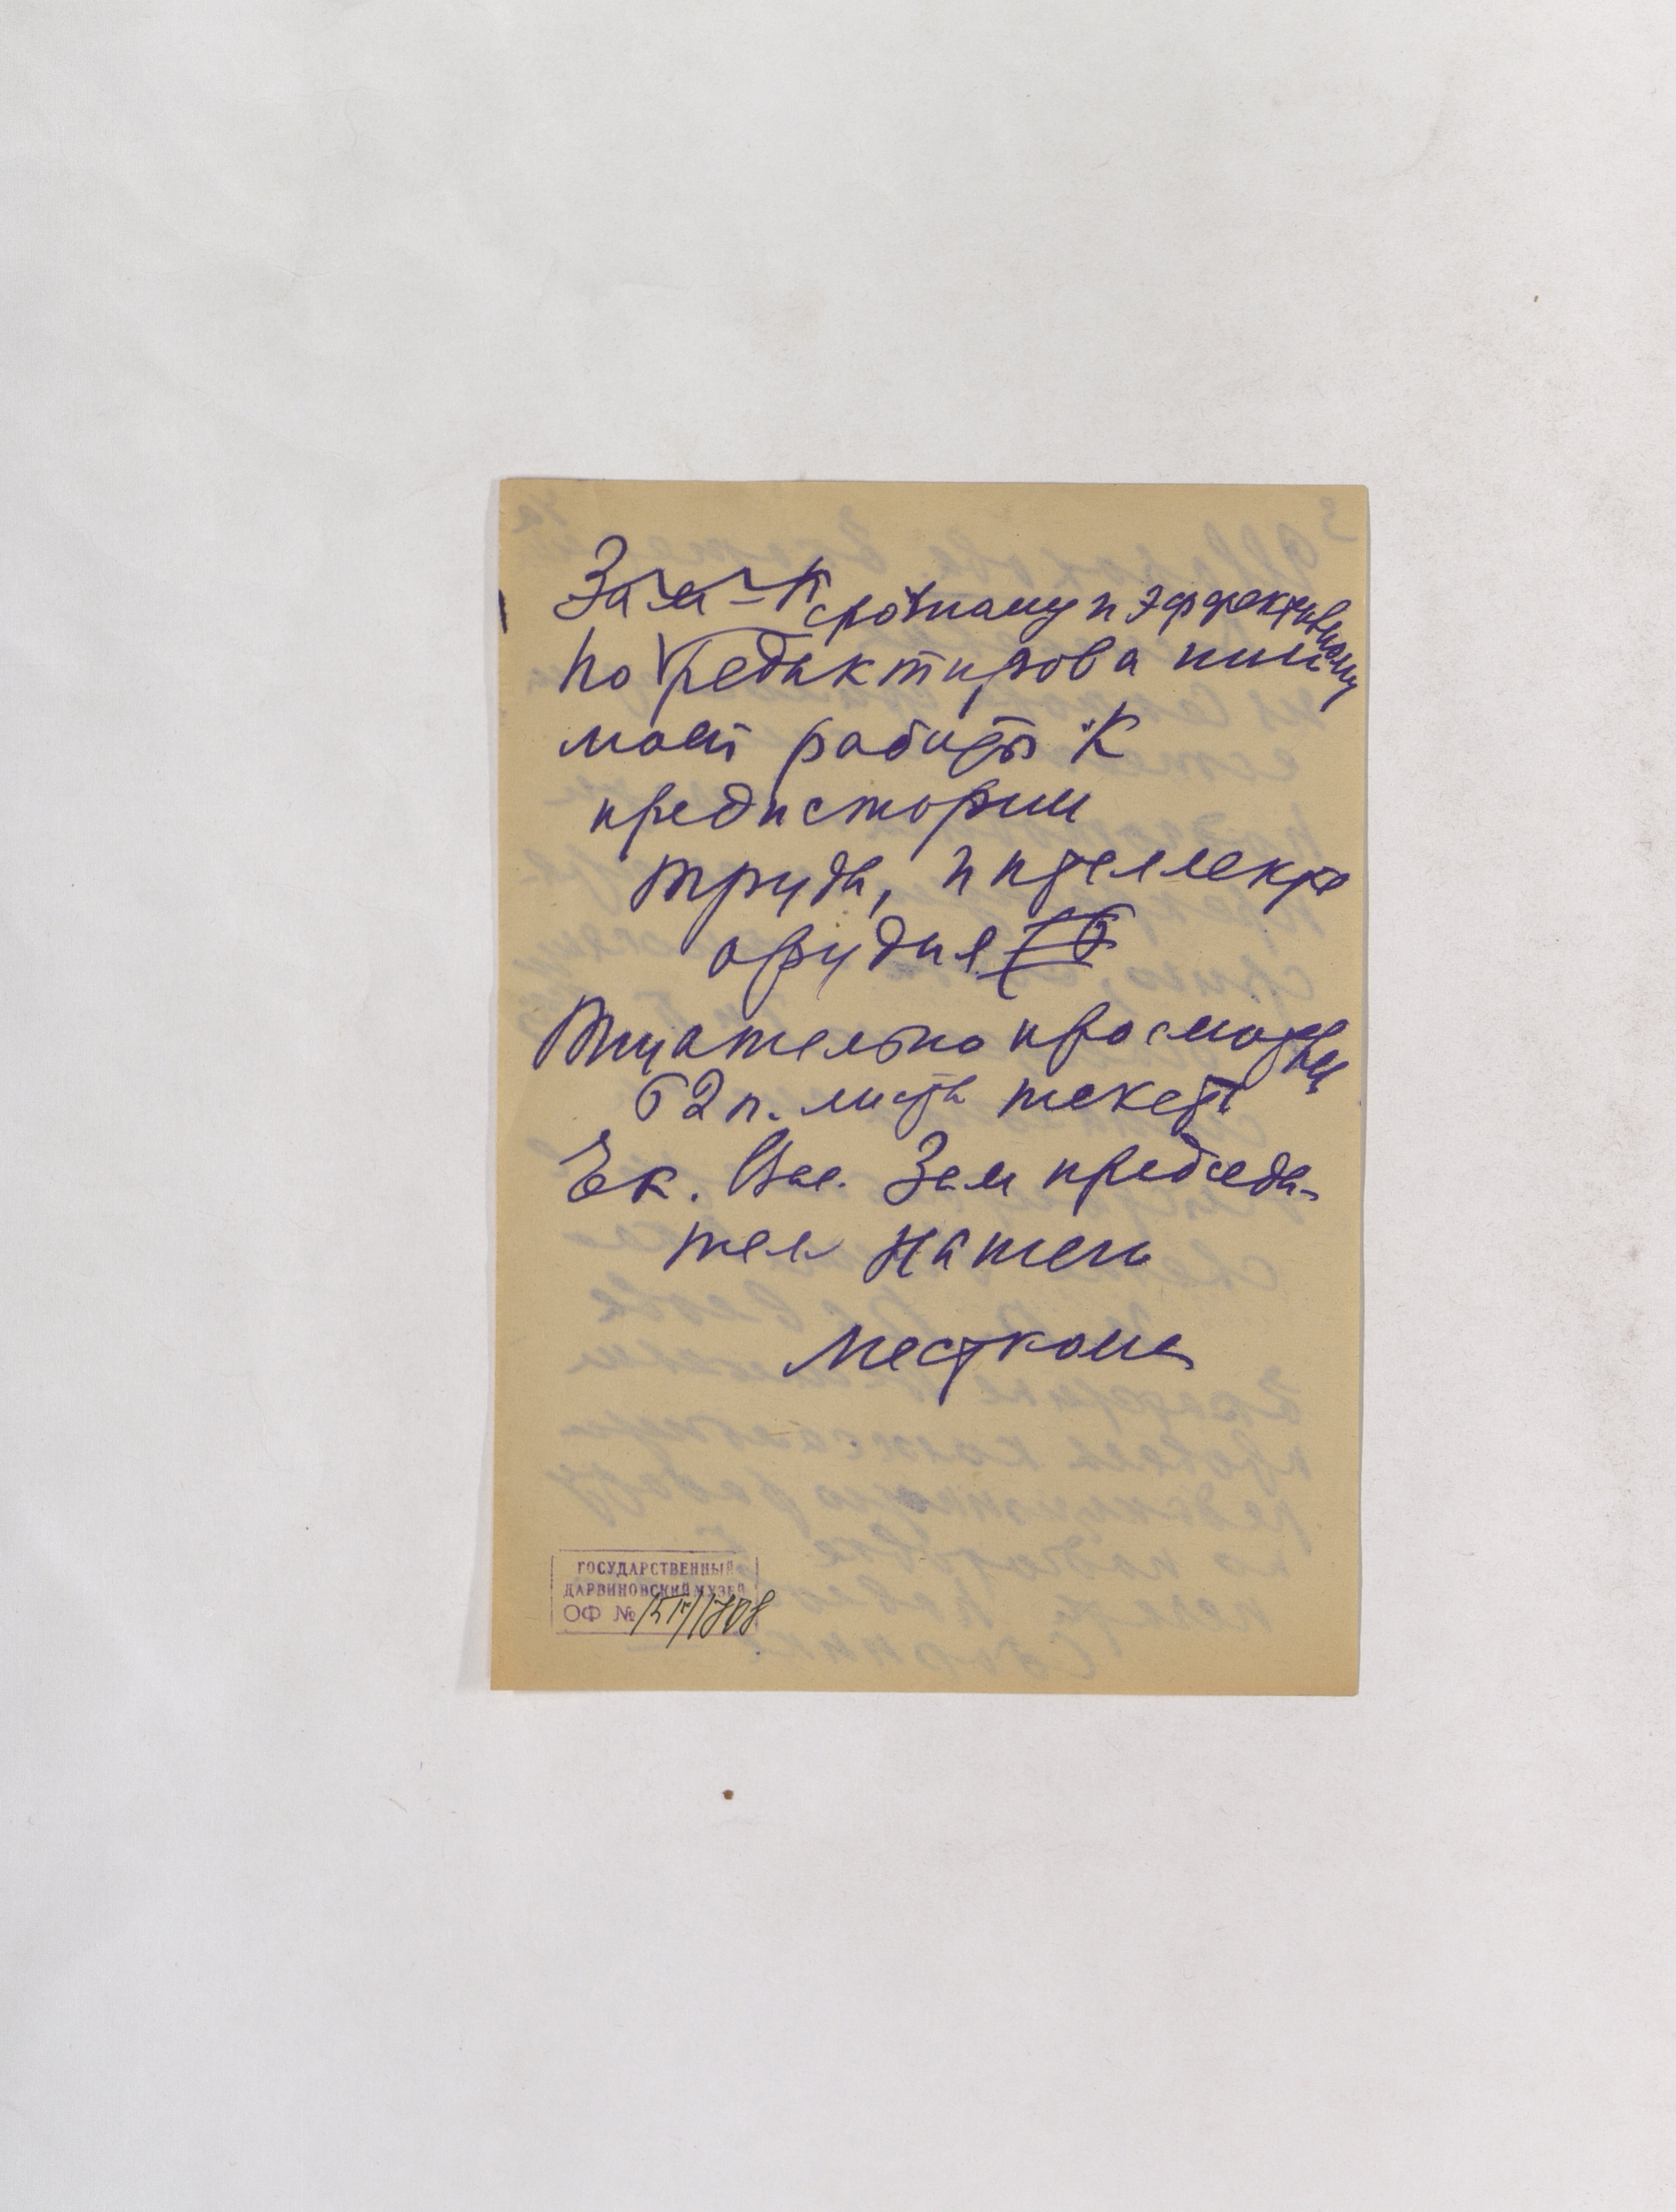 срочному и эффективному
по редактированию
моей работы "К
предистории
труда, интеллекта
орудия
тщательно просмотрены
62 п. листа текста
Ек. Вас. Зам председа-
теля нашего
месткома
ГОСУДАРСТВЕННЫЙ
ДАРВИНОВСКИЙ МУЗЕЙ
ОФ №